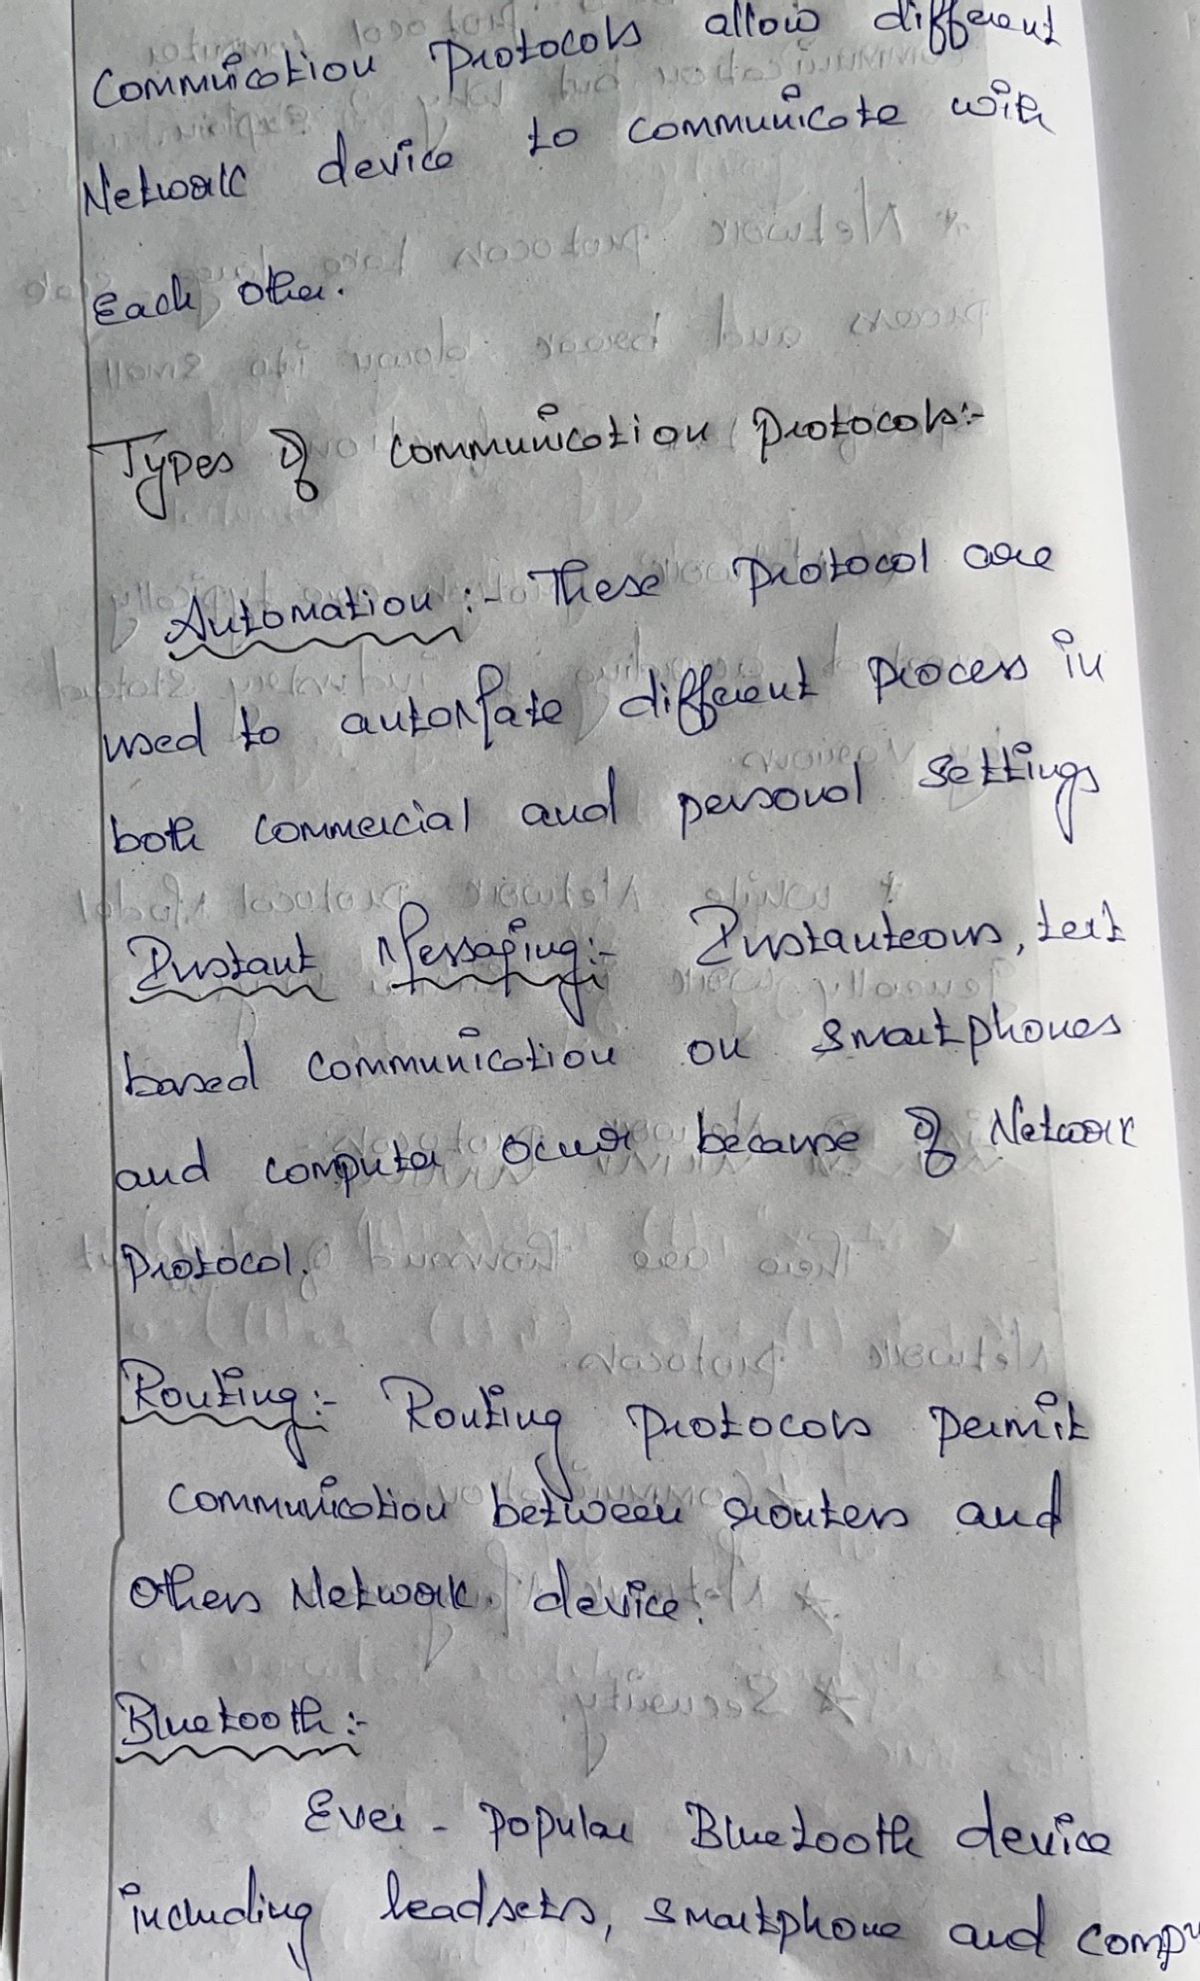 Communication Protocols allow different
Network device to communicate with
Each other.
Types of communication Protocols:-
Automation :- These Protocol are
used to automate different Process in
both commercial and personal settings
Instant Messaging:- Instanteous, text
based communication on smartphones
and computer occur because of Network
Protocol.
Routing:- Routing Protocols Permit
communication between routers and
others Network device.
Bluetooth:-
Ever - Popular Bluetooth device
including headsets, smartphone and